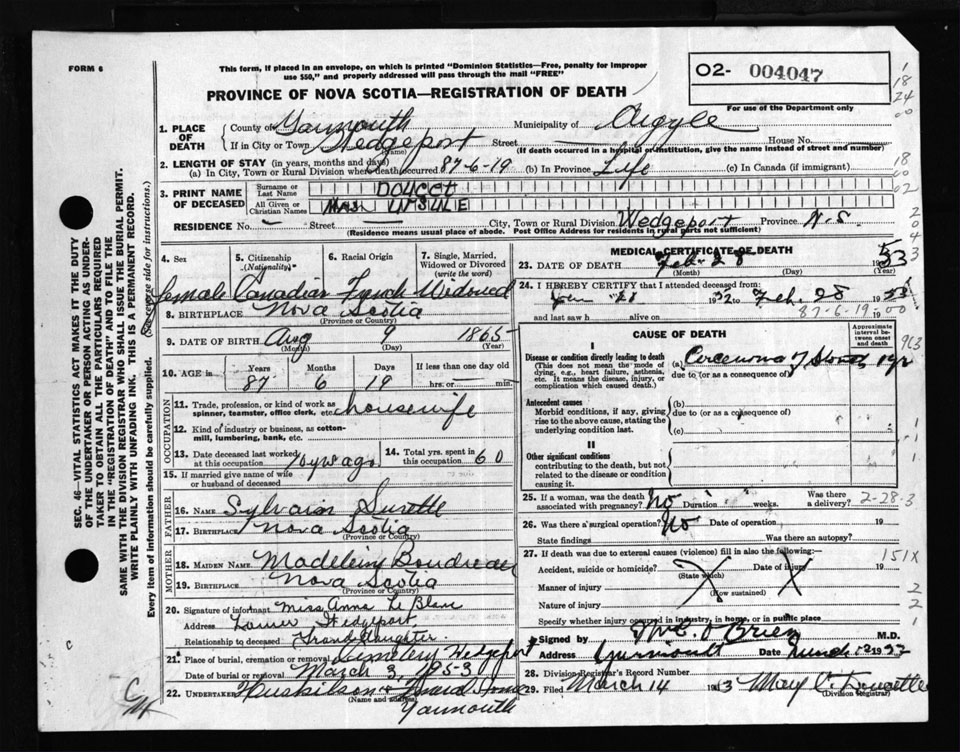 FORM 6
This form, if placed in an envelope, on which is printed "Dominion Statistics—Free, penalty for improper
use $50," and properly addressed will pass through the mail "FREE"
PROVINCE OF NOVA SCOTIA—REGISTRATION OF DEATH
O2- 004047
For use of the Department only
1. PLACE OF DEATH
County of Yarmouth Municipality of Argyle
If in City or Town Wedgeport Street House No.
(Name) (If death occurred in a hospital or institution, give the name instead of street and number)
2. LENGTH OF STAY (in years, months and days)
(a) In City, Town or Rural Division where death occurred 87-6-19 (b) In Province Life (c) In Canada (if immigrant)
3. PRINT NAME OF DECEASED
Surname or Last Name Doucet
All Given or Christian Names Mrs.
RESIDENCE No. - Street City, Town or Rural Division Wedgeport Province N-S
(Residence means usual place of abode. Post Office Address for residents in rural parts not sufficient)
4. Sex 5. Citizenship (Nationality) 6. Racial Origin 7. Single, Married, Widowed or Divorced (write the word)
female Canadian French Widowed
8. BIRTHPLACE Nova Scotia
(Province or Country)
9. DATE OF BIRTH Aug 9 1865
(Month) (Day) (Year)
10. AGE in Years Months Days If less than one day old
87 6 19 hrs. or min.
OCCUPATION
11. Trade, profession, or kind of work as spinner, teamster, office clerk, etc. housewife
12. Kind of industry or business, as cotton-mill, lumbering, bank, etc.
13. Date deceased last worked at this occupation ago 14. Total yrs. spent in this occupation 60
15. If married give name of wife or husband of deceased
FATHER
16. NAME Sylvain Surette
17. BIRTHPLACE Nova Scotia
(Province or Country)
MOTHER
18. MAIDEN NAME Madeleine Boudreau
19. BIRTHPLACE Nova Scotia
(Province or Country)
20. Signature of informant Miss Anna Le Blanc
Address Lower Wedgeport
Relationship to deceased Granddaughter
21. Place of burial, cremation or removal Cemetery Wedgeport
Date of burial or removal March 3, 1953
22. UNDERTAKER Huskilson Funeral Home
(Name and address)
Yarmouth
MEDICAL CERTIFICATE OF DEATH
23. DATE OF DEATH Feb 28 1953
(Month) (Day) (Year)
24. I HEREBY CERTIFY that I attended deceased from:
1952 to Feb. 28 1953
and last saw h alive on 19
87-6-19
CAUSE OF DEATH
Approximate interval between onset and death
I
Disease or condition directly leading to death
(This does not mean the mode of dying, e.g., heart failure, asthenia, etc. It means the disease, injury, or complication which caused death.)
(a) Carcinoma of Stomach 1 yr
due to (or as a consequence of)
Antecedent causes
Morbid conditions, if any, giving rise to the above cause, stating the underlying condition last.
(b)
due to (or as a consequence of)
(c)
II
Other significant conditions
contributing to the death, but not related to the disease or condition causing it.
25. If a woman, was the death associated with pregnancy? No Duration weeks. Was there a delivery?
2-28-3
26. Was there a surgical operation? No Date of operation 19
State findings Was there an autopsy?
27. If death was due to external causes (violence) fill in also the following:—
151X
Accident, suicide or homicide? Date of injury 19
(State which)
Manner of injury
(How sustained)
Nature of injury
Specify whether injury occurred in industry, in home, or in public place
Signed by O'Brien M.D.
Address Yarmouth Date 19
28. Division Registrar's Record Number
29. Filed March 14 1953 Mary Doucette
(Division Registrar)
SEC. 46—VITAL STATISTICS ACT MAKES IT THE DUTY
OF THE UNDERTAKER OR PERSON ACTING AS UNDER-
TAKER TO OBTAIN ALL THE PARTICULARS REQUIRED
IN THE "REGISTRATION OF DEATH" AND TO FILE THE
SAME WITH THE DIVISION REGISTRAR WHO SHALL ISSUE THE BURIAL PERMIT.
WRITE PLAINLY WITH UNFADING INK. THIS IS A PERMANENT RECORD.
Every item of information should be carefully supplied. (See reverse side for instructions.)